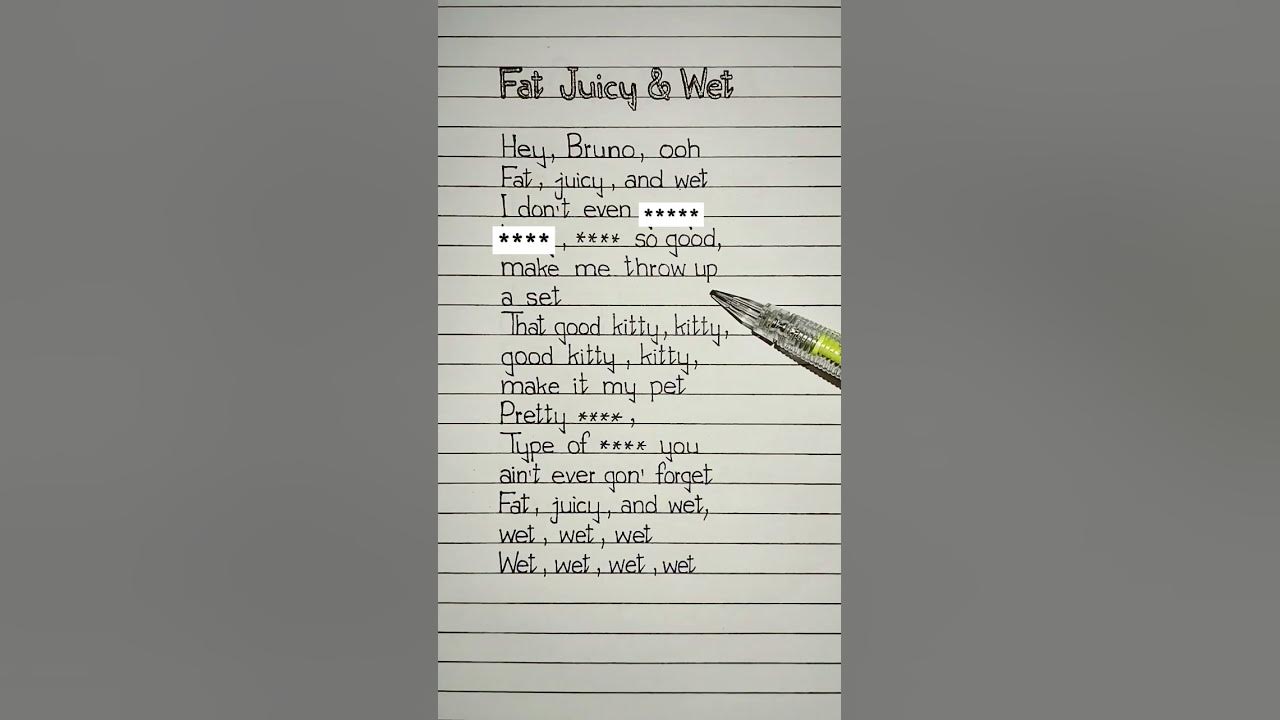 Fat Juicy & Wet
Hey, Bruno, ooh
Fat, juicy, and wet
I don't even *****
****, **** so good,
make me throw up
a set
That good kitty, kitty,
good kitty, kitty,
make it my pet
Pretty ****,
Type of **** you
ain't ever gon' forget
Fat, juicy, and wet,
wet, wet, wet
Wet, wet, wet, wet